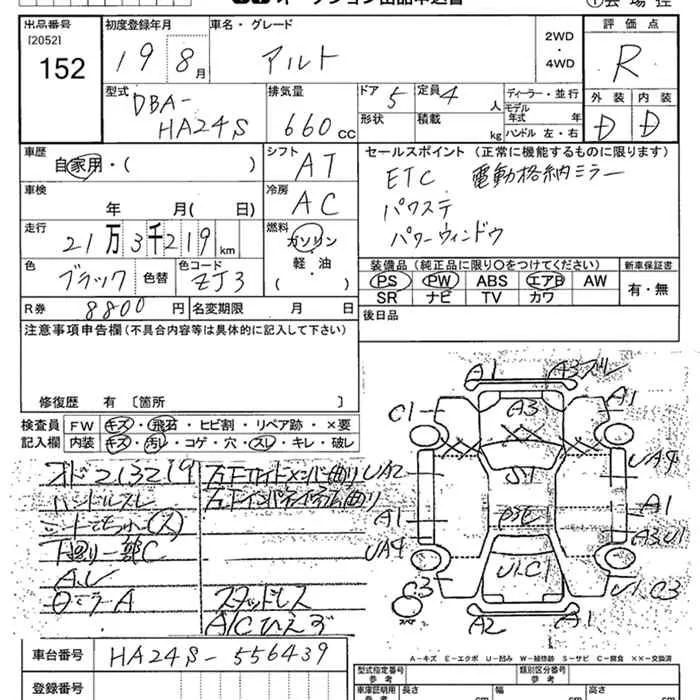 オークション出品申込書
①会場控
出品番号
[2052]
152
初度登録年月
19 8月
車名・グレード
アルト
2WD
・
4WD
評価点
R
型式
DBA-
HA24S
排気量
660cc
ドア 5
定員 4人
形状
積載 kg
ディーラー・並行
モデル
年式 年
ハンドル 左・右
外装 内装
D D
車歴
自家用・( )
シフト
AT
セールスポイント (正常に機能するものに限ります)
ETC 電動格納ミラー
パワステ
パワーウィンドウ
車検
年 月( 日)
冷房
AC
走行
21万3千219km
燃料
ガソリン
軽・油
( )
色
ブラック
色替
色コード
ZJ3
装備品 (純正品に限り○をつけてください)
PS PW ABS エアB AW
SR ナビ TV カワ
新車保証書
有・無
R券 8800円
名変期限 月 日
後日品
注意事項申告欄 (不具合内容等は具体的に記入して下さい)
修復歴 有 〔箇所 〕
検査員
記入欄
FW キズ・飛石・ヒビ割・リペア跡・×要
内装 キズ・汚れ・コゲ・穴・スレ・キレ・破レ
メーター213219
ハンドルスレ
下廻り一部C
スタッドレス
A/Cひえず
A1 A3ズレ
C1 A3 A1
UA2 UA9
A1 A1
UA9 A3U1
C3 U1C1 U1C3
A2 A1
A-キズ E-エクボ U-凹み W-補修跡 S-サビ C-腐食 ××-交換済
車台番号
HA24S-556439
登録番号
型式指定番号
参考
類別区分番号
参考
車庫証明用
参考
長さ cm
幅 cm
高さ cm